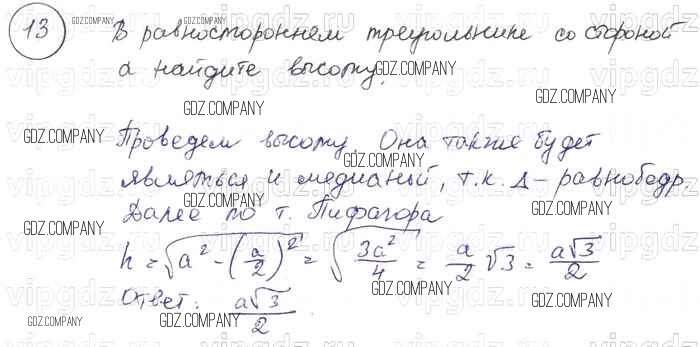 13 В равностороннем треугольнике со стороной
а найдите высоту.
Проведем высоту. Она также будет
являться и медианый, т.к. Δ - равнобедр.
Далее по т. Пифагора
h = √(a² - (a/2)²) = √(3a²/4) = a/2 √3 = a√3/2
Ответ: a√3/2
GDZ.COMPANY
vipgdz.ru